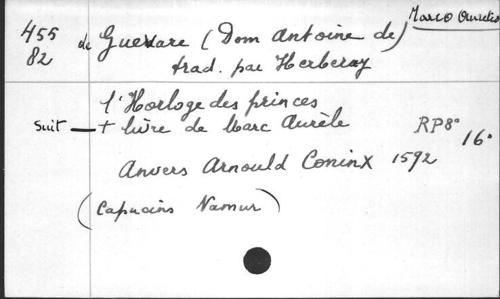 Marco Aurelis
455 de Guevare (Dom Antoine de)
82 trad. par Herberay
l'Horloge des princes
suit — + livre de Marc Aurèle RP8° 16°
Anvers Arnould Coninx 1592
(Capucins Namur)